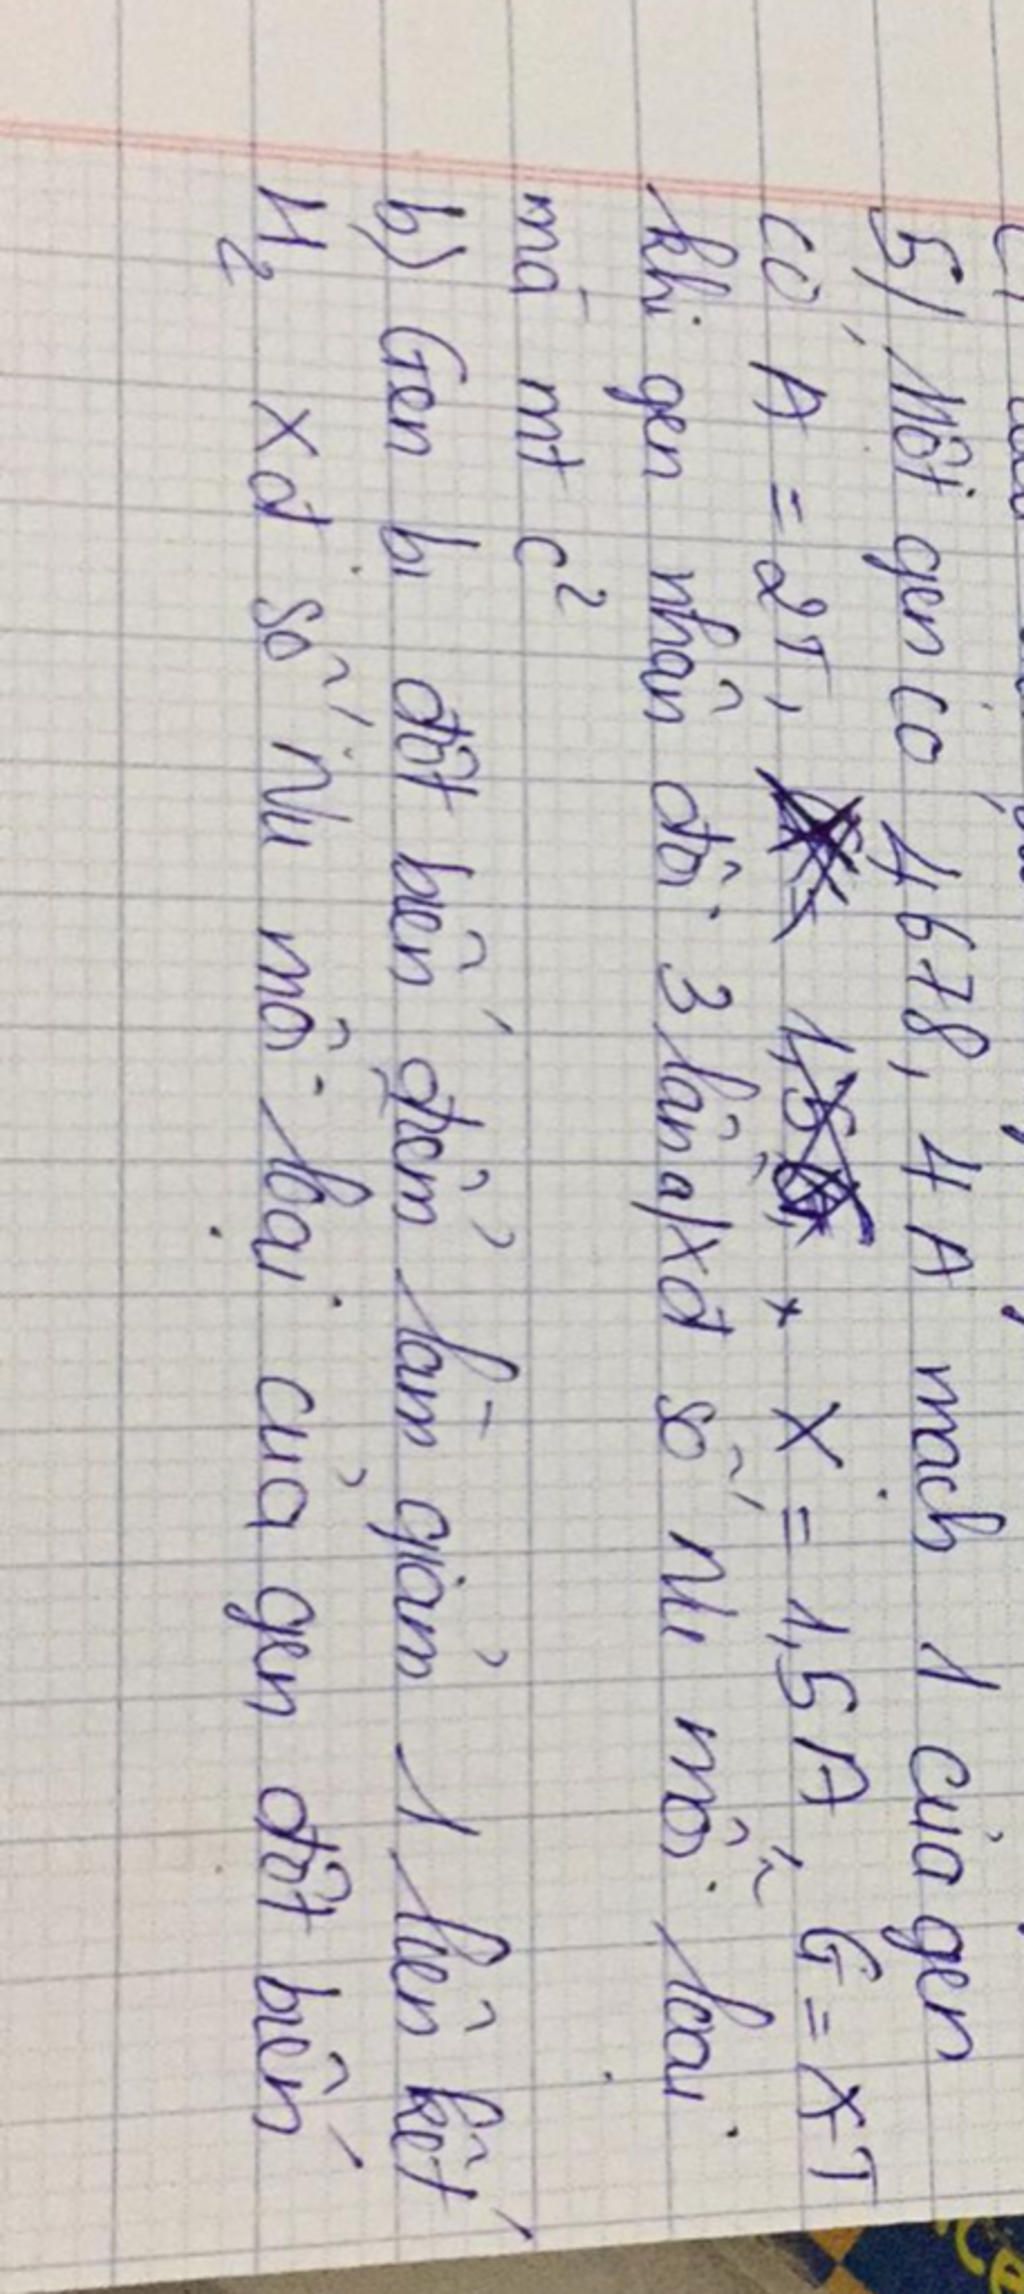 5/ Một gen có 4678,4A mạch 1 của gen
có A = 2T, X = 1,5A, G = X-T
khi gen nhân đôi 3 lần a/ Xđ số Nu mỗi loại
mà mt c²
b) Gen bị đột biến điểm làm giảm 1 liên kết
H2 Xđ số Nu mỗi loại của gen đột biến